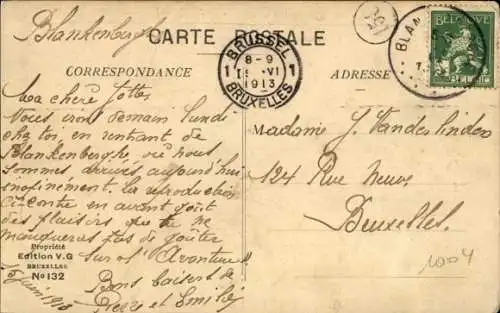 Blankenberghe
CARTE POSTALE
CORRESPONDANCE
ADRESSE
BRUSSEL
8-9
VI
1 1
1913
BRUXELLES
BLAN
BELGIQUE
BELGIË
Ma chère
Nous irons demain lundi
chez toi en rentrant de
Blankenberghe où nous
sommes arrivés aujourd'hui
inopinément. La reproduction
ci-contre en avant goût
des plaisirs que tu ne
manqueras pas de goûter
sur l'
Bons baisers de
et Emilie
Madame J. Vanderlinden
124 Rue Neuve
Bruxelles.
Propriété
Edition V.G
BRUXELLES
No 132
15 juin 1913
1004